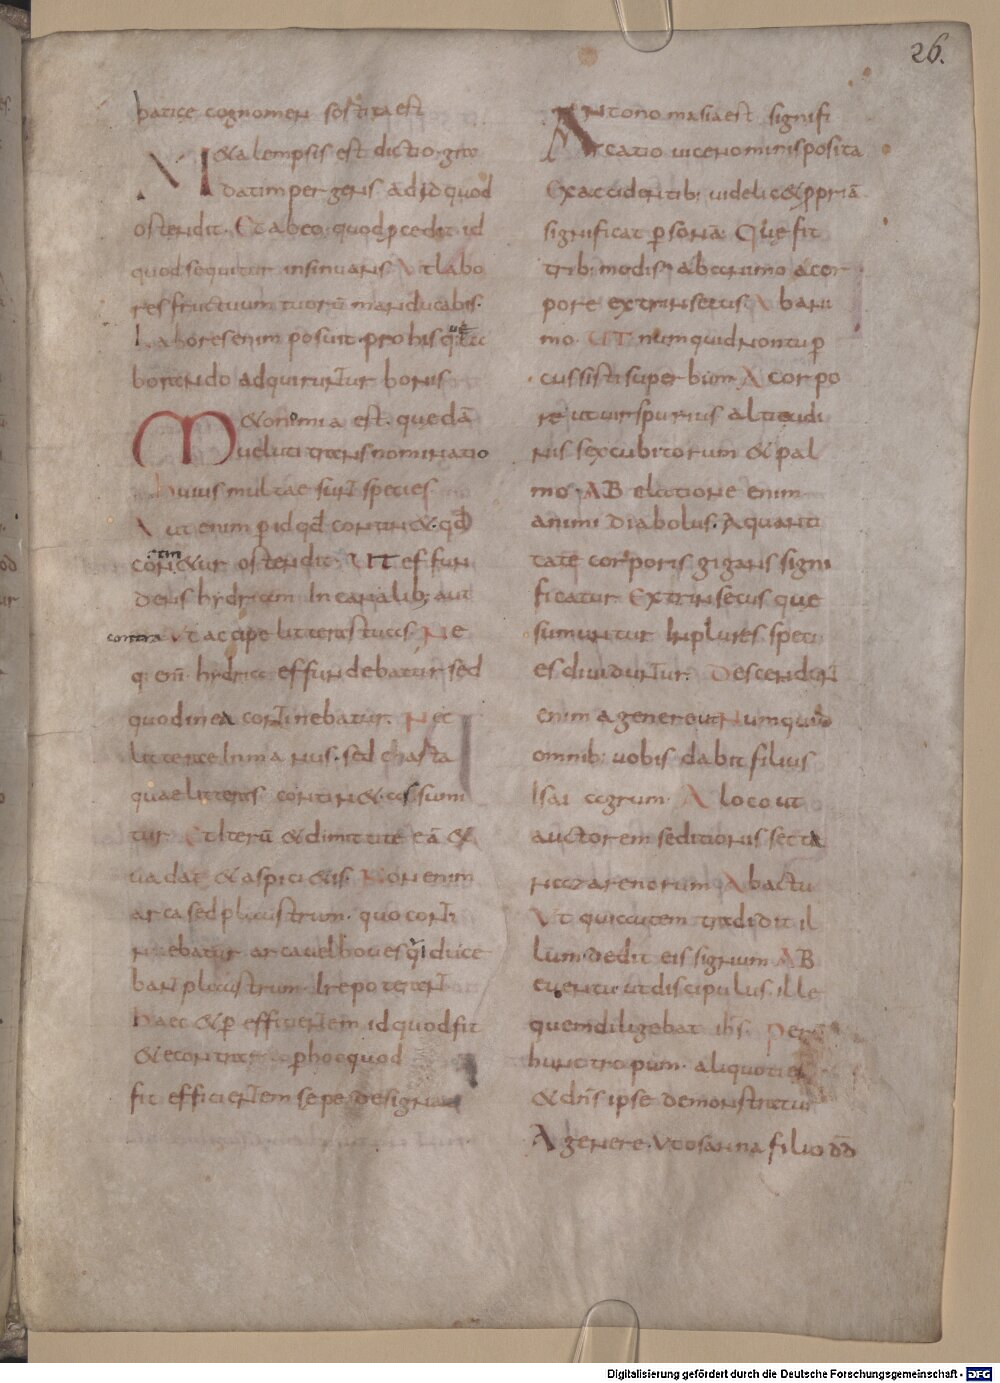 26.
batice cognomen sortita est
M &alempsis est dictio gra
datim pergens ad id quod
ostendit. Et ab eo quod p̄cedit id
quod sequitur insinuans. Ut labo
res fructuum tuorū manducabis.
Labores enim posuit pro his quę la
borando adquiruntur bonis
M &onomia est. quedā
ueluti trans nominatio
huius multae sunt species
Aut enim p id qđ contin&. qđ
contin&ur ostendit. UT effun
dens hydriam In canalib; aut
contra Ut accipe litteras tuas. Ne
q; eni hydria effundebatur sed
quod in ea continebatur. Nec
litterae In manus. sed charta
quae litteras contin& assumi
tur. Et Iterū &dimittite eā &
uadat &aspici&is. Non enim
arca sed plaustrum. quo conti
nebatur arca uel boues qui duce
bant plaustrum. Ire poterant
haec & p efficientem id quod fit
& econtrario p hoc quod
fit efficientem sepe designat
Antonomasia est signifi
catio uice nominis posita
Ex accidentib; uidelic& ppriā
significat psonā. Quę fit
trib; modis. ab animo a cor
pore extrinsecus. Ab ani
mo. UT numquid non tu p
cussisti superbum A corpo
re ut uir spurius altitudi
nis sex cubitorum & pal
mo. AB elatione enim
animi diabolus. A quanti
tate corporis gigans signi
ficatur. Extrinsecus que
sumuntur In plures speci
es diuiduntur. Descendunt
enim a genere ut Numquid
omnib; uobis dabit filius
Isai agrum. A loco ut
auctorem seditionis secta
nazarenorum A bactu
Ut qui autem tradidit il
lum. dedit eis signum AB
euentu ut discipulus. ille
quem diligebat ihs. Per
hunc tropum. aliquoties
& dns ipse demonstratur
A genere. Ut osanna filio dd
Digitalisierung gefördert durch die Deutsche Forschungsgemeinschaft - DFG